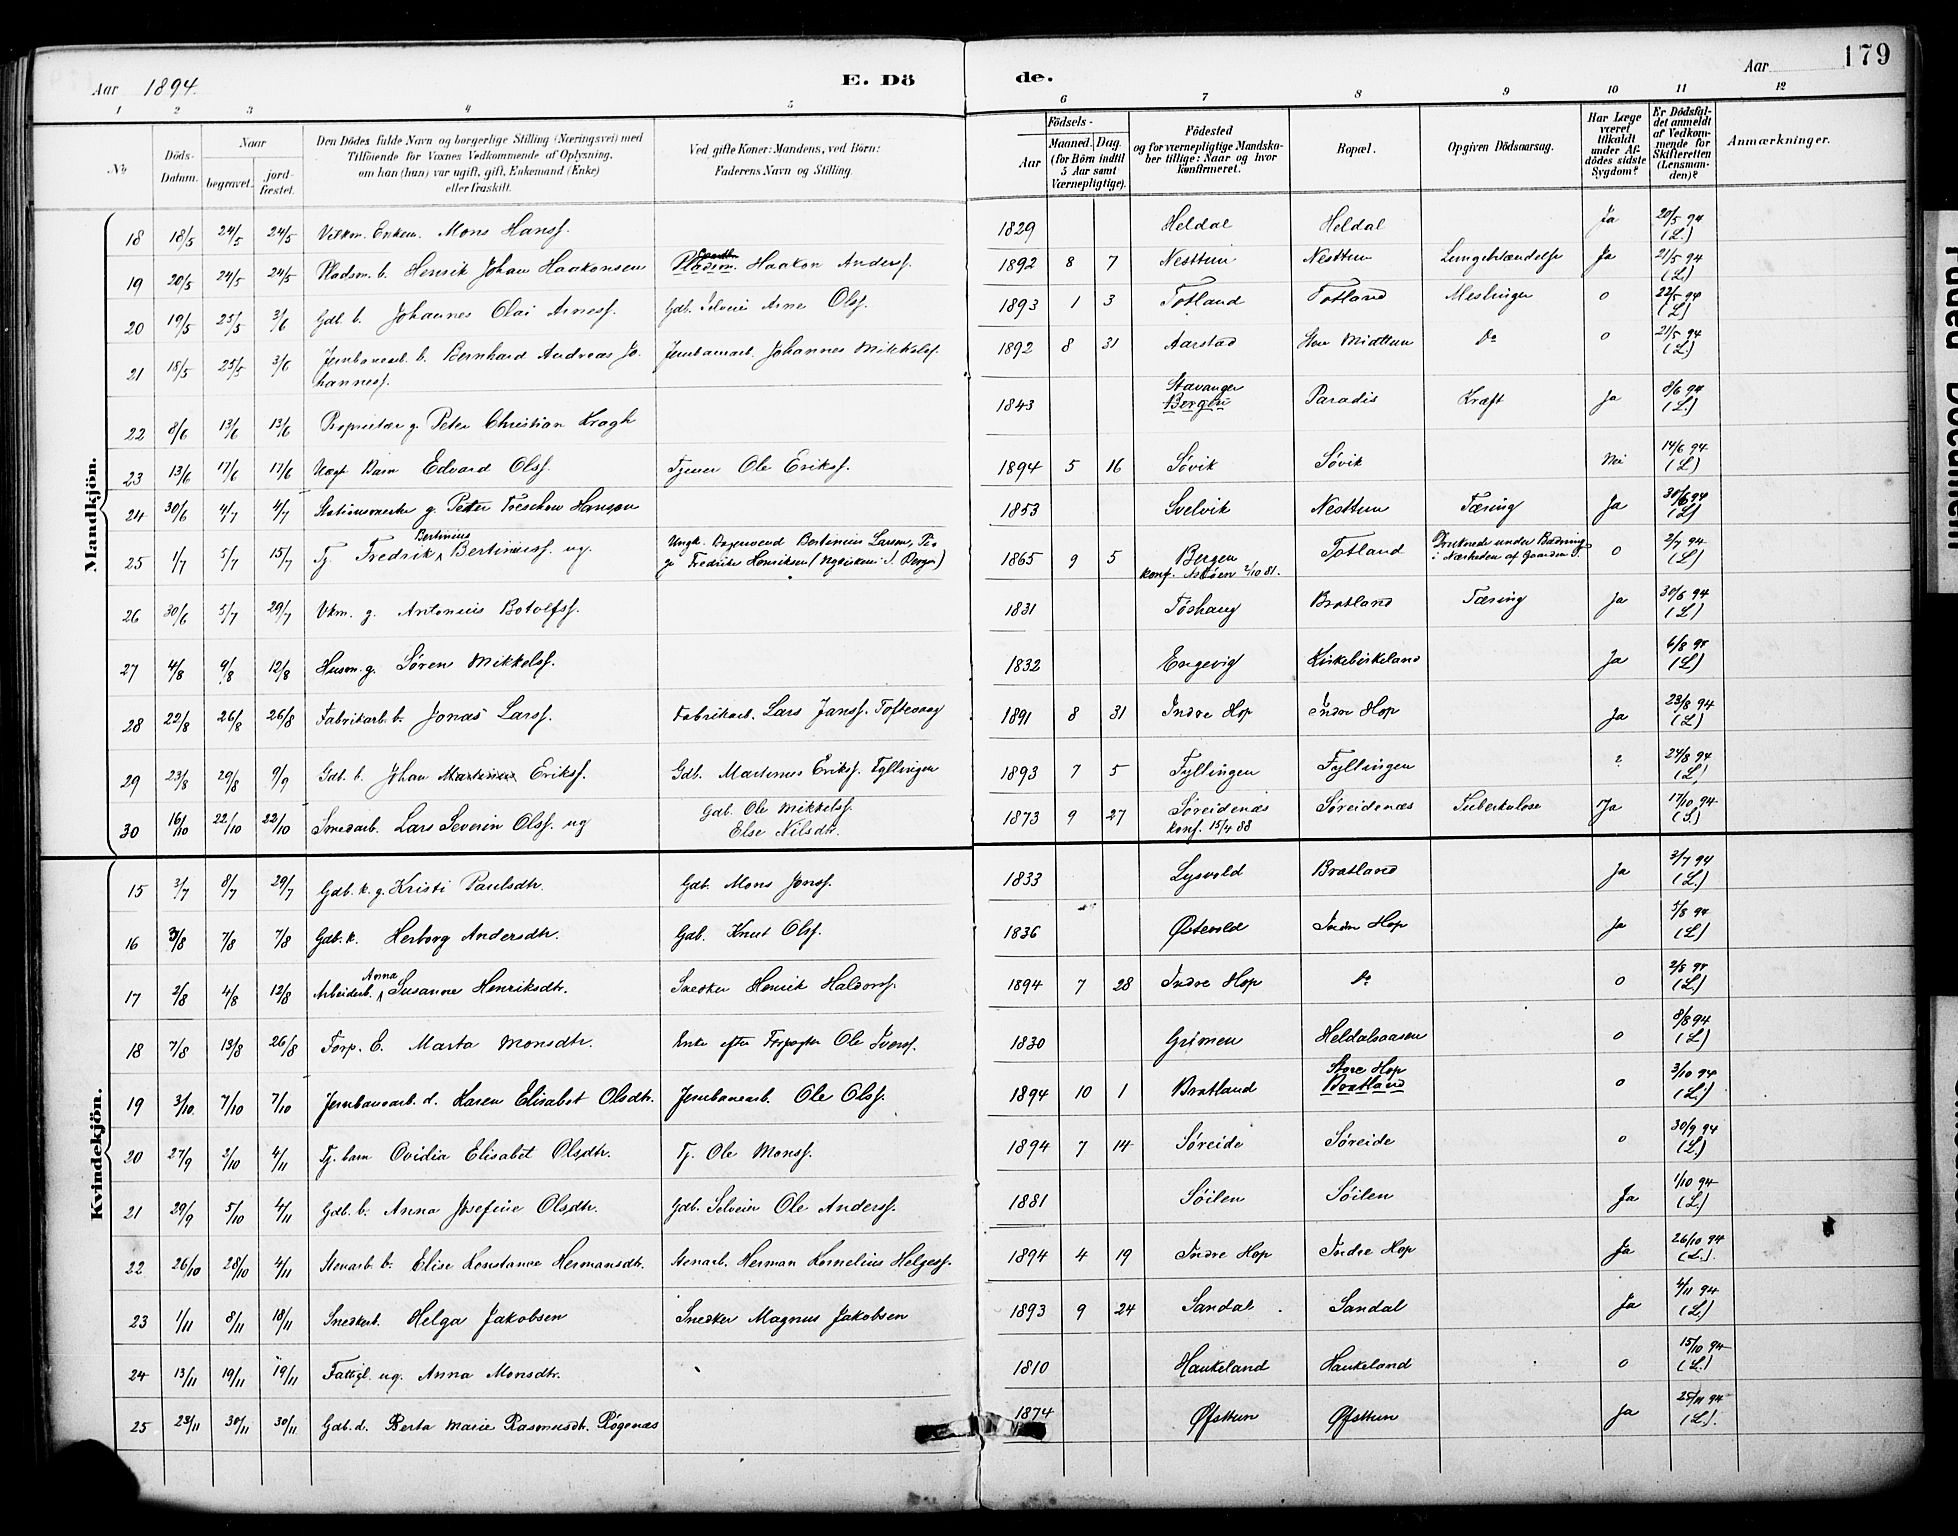 179
Aar 1894. E. Döde. Aar
1 2 3 4 5 6 7 8 9 10 11 12
No. Döds-Datum. Naar begravet. jordfæstet. Den Dödes fulde Navn og borgerlige Stilling (Næringsvei) med Tilföiende for Voxnes Vedkommende af Oplysning, om han (hun) var ugift, gift, Enkemand (Enke) eller fraskilt. Ved gifte Koner: Mandens, ved Börn: Faderens Navn og Stilling. Födsels- Aar Maaned. Dag. (for Börn indtil 5 Aar samt Værnepligtige). Födested og for værnepligtige Mandskaber tillige: Naar og hvor konfirmeret. Bopæl. Opgiven Dödsaarsag. Har Læge været tilkaldt under Afdödes sidste Sygdom? Er Dödsfaldet anmeldt af Vedkommende for Skifteretten (Lensmanden)? Anmærkninger.
Mandkjön.
18 18/5 24/5 24/5 Enkem. Mons Hansf. 1829 Heldal Heldal Ja 20/5 94 (L.)
19 20/5 24/5 24/5 Pladsm. b. Henrik Johan Haakonsen Pladsm. Haakon Andersf. 1892 8 7 Nesttun Nesttun Lungebetændelse Ja 21/5 94 (L.)
20 19/5 25/5 3/6 Gdb. b. Johannes Olai Arnesf. Gdb. Selveier Arne Olsf. 1893 1 3 Totland Totland Meslinger 0 22/5 94 (L)
21 18/5 25/5 3/6 Jernbanearb. b. Bernhard Andreas Johannesf. Jernbanearb. Johannes Mikkelsf. 1892 8 31 Aarstad Store Midttun Do 0 21/5 94 (L.)
22 8/6 13/6 13/6 Proprietær g. Peter Christian Kragh 1843 Stavanger Bergen Paradis Kræft Ja 8/6 94 (L.)
23 13/6 17/6 17/6 Uægt Barn Edvard Olsf. Tjener Ole Eriksf. 1894 5 16 Søvik Søvik Nei 14/6 94 (L)
24 30/6 4/7 4/7 Stationsmester g. Peter Treschow Hanson 1853 Svelvik Nesttun Tæring Ja 30/6 94 (L)
25 1/7 5/7 15/7 Tj. Fredrik Bertinius Bertiniusf. ug. Ungk. Bertinius Larsen, Pige Fredrikke Henriksen 1865 9 5 Bergen konf. Askøen 2/10 81. Totland Druknede under Badning i Nærheden af Gaarden 0 2/7 94 (L)
26 30/6 5/7 29/7 Vkm. g. Antonius Botolfsf. 1831 Tøshaug Bratland Tæring Ja 30/6 94 (L)
27 4/8 9/8 12/8 Husm. g. Søren Mikkelsf. 1832 Engevig Kirkebirkeland Ja 6/8 94 (L)
28 22/8 26/8 26/8 Fabrikarb. b. Jonas Larsf. Fabrikarb. Lars Jansf. Toftevaag 1891 8 31 Indre Hop Indre Hop Ja 23/8 94 (L)
29 23/8 29/8 9/9 Gdb. b. Johan Martinius Eriksf. Gdb. Martines Eriksf. Fyllingen 1893 7 5 Fyllingen Fyllingen ? 24/8 94 (L)
30 16/10 22/10 22/10 Smedarb. Lars Severin Olsf. ug Gdb. Ole Mikkelsf. Else Nilsdtr. 1873 9 27 Søreidenæs konf. 15/4 88 Søreidenæs Tuberkulose Ja 17/10 94 (L.)
Kvindekjön.
15 3/7 8/7 29/7 Gdb. k. g. Kristi Paulsdtr. Gdb. Mons Jonsf. 1833 Lysvold Bratland Ja 3/7 94 (L)
16 3/8 7/8 7/8 Gdb. k. Herborg Andersdtr. Gdb. Knut Olsf. 1836 Østevold Indre Hop Ja 5/8 94 (L)
17 2/8 4/8 12/8 Arbeiderb. Anna Susanne Henriksdtr. Snedker Henrik Haldorsf. 1894 7 28 Indre Hop Do 0 2/8 94 (L.)
18 7/8 13/8 26/8 Forp. E. Marta Monsdtr. Enke efter Forpagter Ole Iversf. 1830 Grimen Heldalsaasen 0 8/8 94 (L)
19 3/10. 7/10 7/10 Jernbanearb. d. Karen Elisabet Olsdtr. Jernbanearb. Ole Olsf. 1894 10 1 Bratland Store Hop Bratland 0 3/10 94 (L.)
20 27/9 3/10 4/11 Tj. barn Ovidia Elisabet Olsdtr. Tj. Ole Monsf. 1894 7 14 Søreide Søreide 0 30/9 94 (L.)
21 29/9 5/10 4/11 Gdb. b. Anna Josefine Olsdtr. Gdb. Selveier Ole Andersf. 1881 Søilen Søilen Ja 1/10 94 (L.)
22 26/10 28/10 4/11 Stenarb. b. Elise Konstanse Hermansdtr. Stenarb. Herman Kornelius Helgesf. 1894 4 19 Indre Hop Indre Hop Ja 26/10 94 (L.).
23 1/11 8/11 18/11 Snedkerb. Helga Jakobsen Snedker Magnus Jakobsen 1893 9 24 Sandal Sandal Ja 4/11 94 (L.)
24 13/11 19/11 19/11 Fattigl. ug. Anna Monsdtr. 1810 Haukeland Haukeland 0 15/10 94 (L.)
25 23/11 30/11 30/11 Gdb. d. Berta Marie Rasmusdtr. Røgenæs 1874 Øfsttun Øfsttun Ja 25/11 94 (L.).